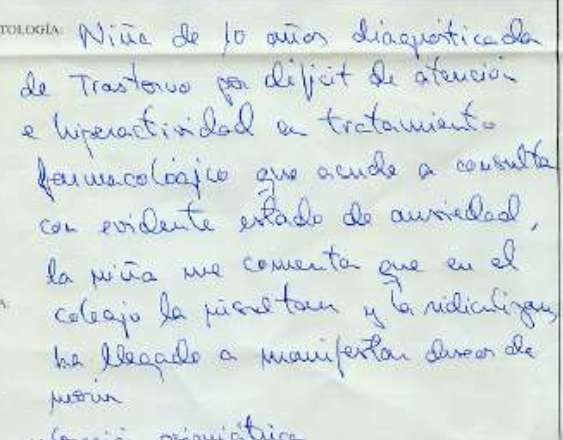 TOLOGÍA: Niña de 10 años diagnosticada
de Trastorno por déficit de atención
e hiperactividad en tratamiento
farmacológico que acude a consulta
con evidente estado de ansiedad,
la niña me comenta que en el
colegio la insultan y la ridiculizan,
A:
ha llegado a manifestar deseos de
morir
psiquiátrica